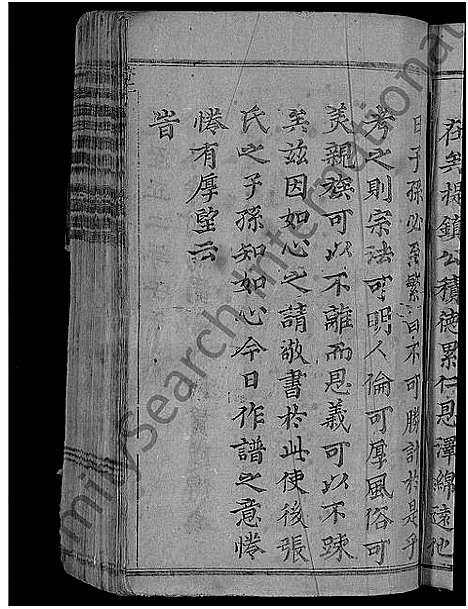 在矣提鎮公積德累仁恩澤綿遠他
日子孫必至繁衍不可勝計於是乎
考之則宗法可明人倫可厚風俗可
美親族可以不離而恩義可以不踈
矣兹因如心之請敬書於此使後張
氏之子孫知如心今日作譜之意惓
惓有厚望云
旹
FamilySearch International